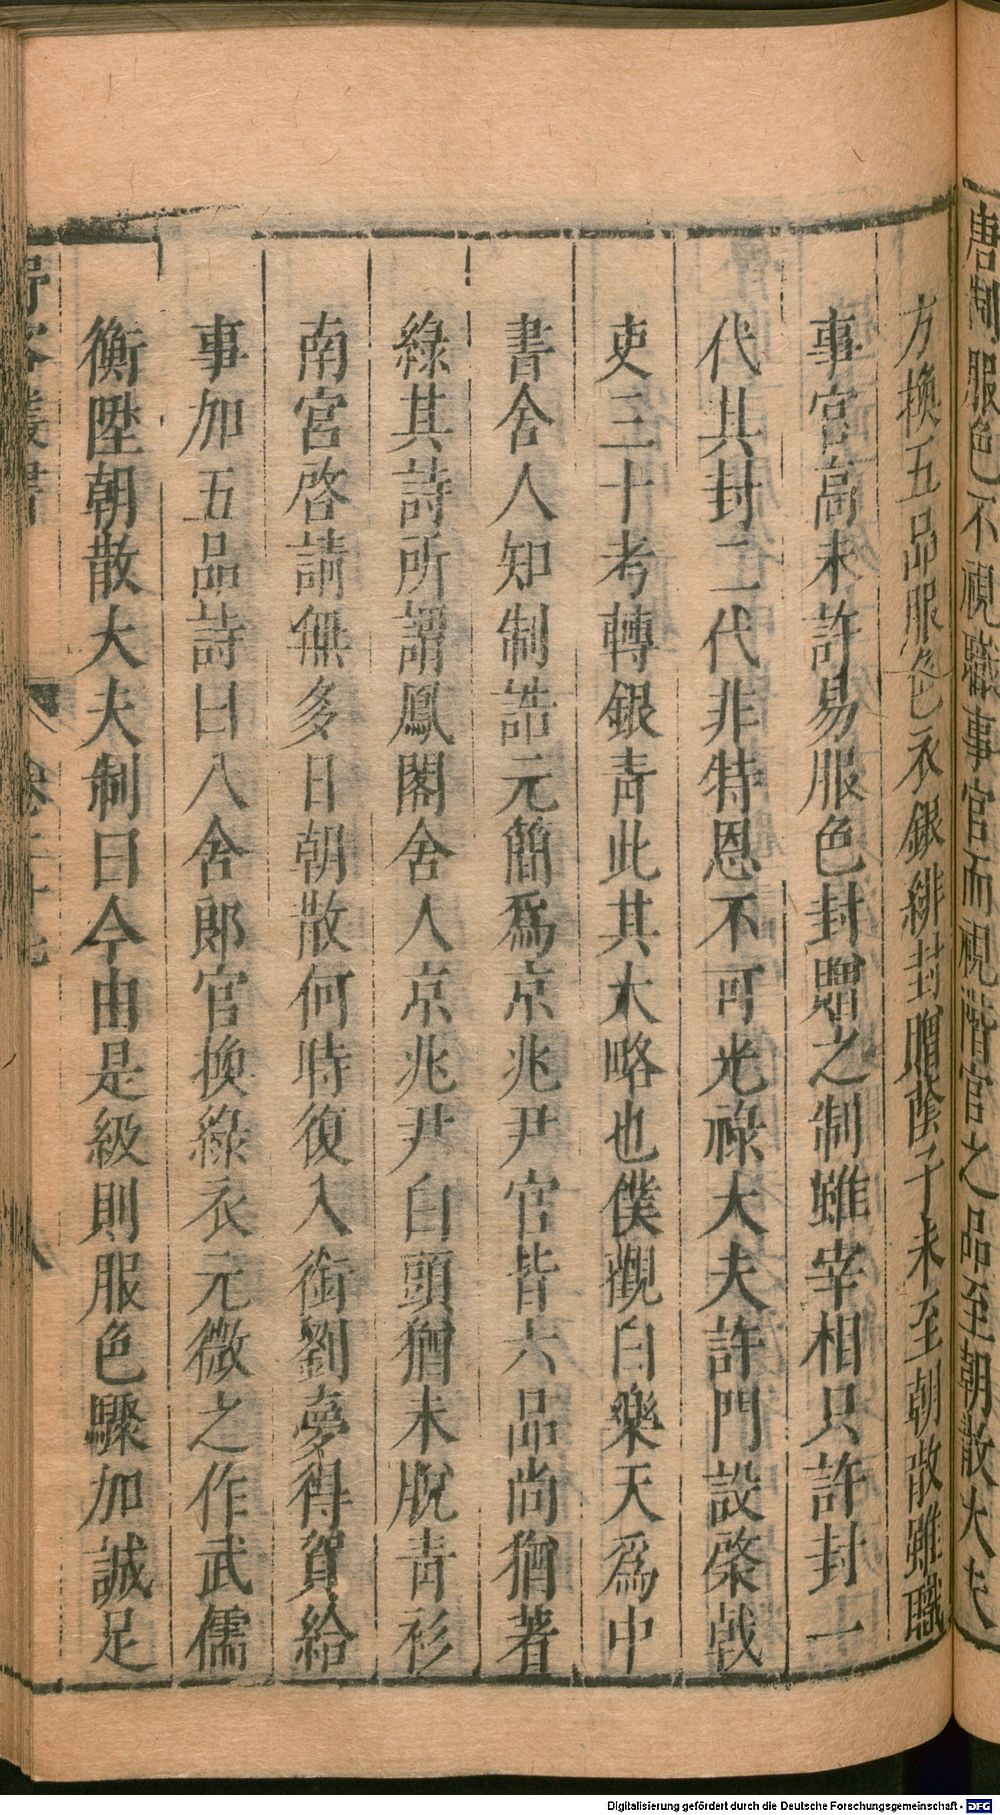 唐制服色不視職事官而視階官之品至朝散大夫
方換五品服色衣銀緋封贈蔭子未至朝散雖職
事官高未許易服色封贈之制雖宰相只許封一
代其封二代非特恩不可光祿大夫許門設棨戟
吏三十考轉銀青此其大略也僕觀白樂天為中
書舍人知制誥元簡為京兆尹官皆六品尚猶著
綠其詩所謂鳳閣舍人京兆尹白頭猶未脫青衫
南宮啓請無多日朝散何時復入銜劉夢得賀給
事加五品詩曰八舍郎官換綠衣元微之作武儒
衡陞朝散大夫制曰今由是級則服色驟加誠足
野客叢書 卷二十七 八
Digitalisierung gefördert durch die Deutsche Forschungsgemeinschaft - DFG